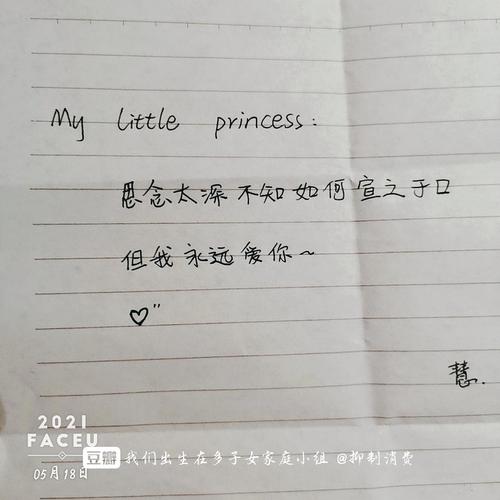 My little princess:
思念太深不知如何宣之于口
但我永远爱你~
♡"
慧.
2021
FACEU
05月18日
豆瓣 我们出生在多子女家庭小组 @抑制消费